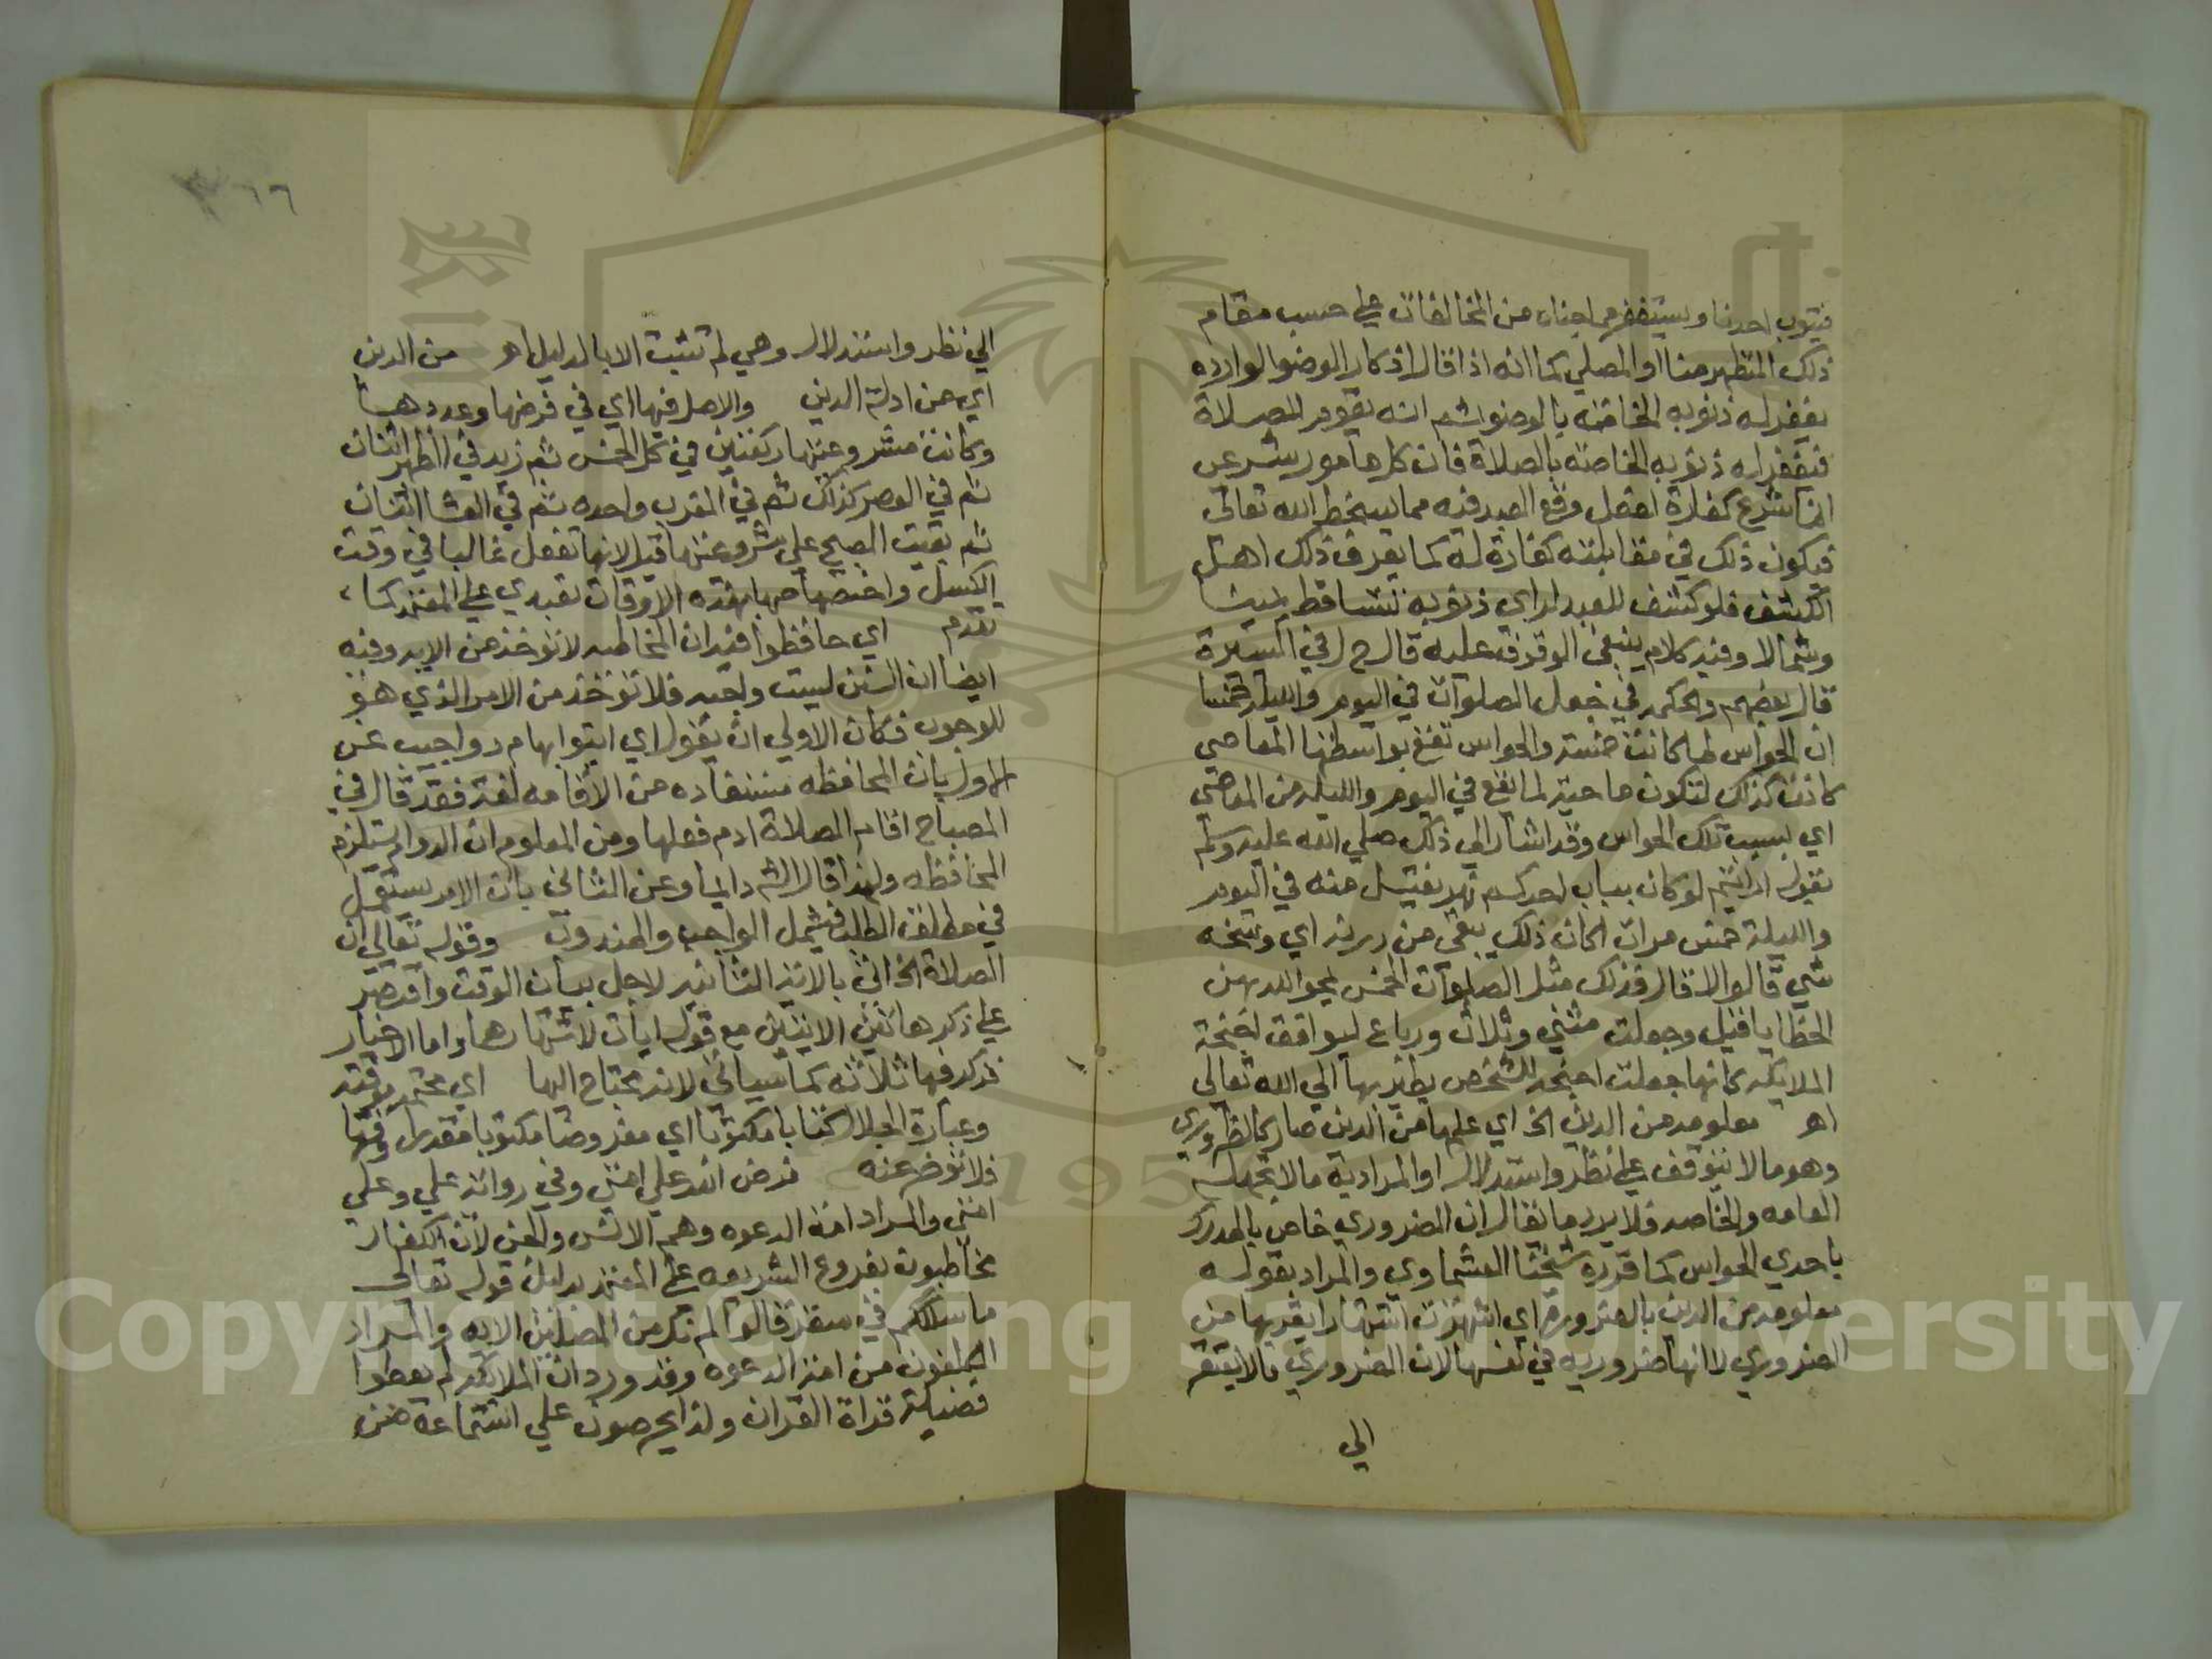 فيتوب احدنا ويستغفر مما جناه من المخالفات علي حسب مقام
ذلك المتطهر منا او المصلي كما انه اذا قال اذكار الوضو الوارده
يغفر له ذنوبه الخاصه بالوضو ثم انه يقوم للصلاة
فيغفر له ذنوبه الخاصه بالصلاة فان كل مامور شرعي
انما شرع كفارة لفعل وقع العبد فيه مما يسخط الله تعالى
فيكون ذلك في مقابلته كفارة له كما يعرف ذلك اهل
الكشف فلو كشف للعبد لراي ذنوبه تتساقط يمينا
وشمالا وفيه كلام ينبغي الوقوف عليه قال ح ل في السيرة
قال بعضهم والحكمه في جعل الصلوات في اليوم والليله خمسا
ان الحواس لما كانت خمسة والحواس تقع بواسطتها المعاصي
كانت كذلك لتكون ماحية لما يقع في اليوم والليله من المعاصي
اي بسبب تلك الحواس وقد اشار الي ذلك صلي الله عليه وسلم
بقوله ارايتم لو كان بباب احدكم نهر يغتسل منه في اليوم
والليلة خمس مرات اكان ذلك يبقي من درنه اي وسخه
شي قالوا لا قال فذلك مثل الصلوات الخمس يمحو الله بهن
الخطايا قيل وجعلت مثني وثلاث ورباع ليوافق اجنحة
الملايكه كانها جعلت اجنحه للشخص يطير بها الي الله تعالي
اهـ معلومه من الدين الخ اي علمها من الدين صار كالضروري
وهو ما لا يتوقف علي نظر واستدلال او المراد به ما لا يجهله
العامه والخاصه فلا يرد ما يقال ان الضروري خاص بالمدرك
باحدي الحواس كما قرره شيخنا العشماوي والمراد بقوله
معلومه من الدين بالضروره اي اشتهرت اشتهارا يقربها من
الضروري لا انها ضروريه في نفسها لان الضروري لا يفتقر
الي
٦٦
الي نظر واستدلال وهي لم تثبت الا بالدليل اهـ من الدين
اي من ادلة الدين والاصل فيها اي في فرضها وعددها
وكانت مشروعيتها ركعتين في كل الخمس ثم زيد في الظهر اثنتان
ثم في العصر كذلك ثم في المغرب واحده ثم في العشا اثنتان
ثم بقيت الصبح علي مشروعيتها قيل لانها تفعل غالبا في وقت
الكسل واختصاصها بهذه الاوقات تعبدي علي المعتمد كما
تقدم اي حافظوا فيه ان المحافظه لا توخذ من الايه وفيه
ايضا ان السنن ليست واجبه فلا توخذ من الامر الذي هو
للوجوب فكان الاولي ان يقول اي ايتوا بها م د واجيب عن
الاول بان المحافظه مستفاده من الاقامه لغة فقد قال في
المصباح اقام الصلاة ادام فعلها ومن المعلوم ان الدوام يستلزم
المحافظه ولهذا قال الش دايما وعن الثاني بان الامر يستعمل
في مطلق الطلب فيشمل الواجب والمندوب وقوله تعالي ان
الصلاة الخ اتي بالاية الثانيه لاجل بيان الوقت واقتصر
علي ذكر هاتين الايتين مع قوله ايات لاشتهارهما واما الاخبار
فذكر فيها ثلاثه كما سياتي لانه محتاج اليها اي محتمه موقته
وعبارة الجلال كتابا مكتوبا اي مفروضا مكتوبا مقدرا وقتها
فلا توخر عنه فرض الله علي امتي وفي رواية علي وعلي
امتي والمراد امة الدعوه وهم الانس والجن لان الكفار
مخاطبون بفروع الشريعه علي المعتمد بدليل قوله تعالي
ما سلككم في سقر قالوا لم نك من المصلين الايه والمراد
المكلفون من امة الدعوه وقد ورد ان الملايكه لم يعطوا
فضيلة قراة القران ولذا يحرصون علي استماعه من